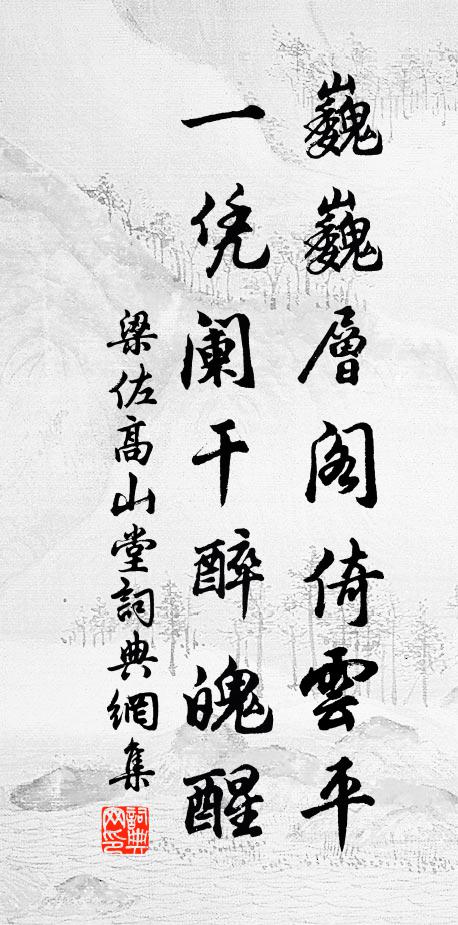 巍巍層阁倚雲平
一凭阑干醉魄醒
梁佐高山堂詞典網集
詞典网印